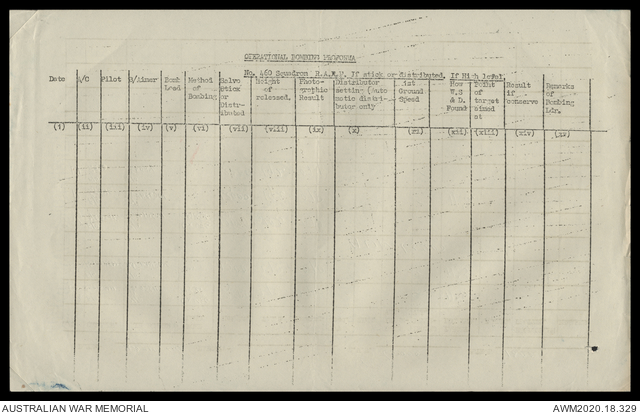 OPERATIONAL BOMBING PROFORMA
No. 460 Squadron R.A.A.F. If stick or distributed. If High level.
Date A/C Pilot B/Aimer Bomb Load Method of Bombing Salvo Stick or Distributed Height of released. Photographic Result Distributor setting (Automatic distributor only Ground Speed How W.S & D. Found Point of target aimed at Result if conserve Remarks of Bombing Ldr.
(i) (ii) (iii) (iv) (v) (vi) (vii) (viii) (ix) (x) (xi) (xii) (xiii) (xiv) (xv)
AUSTRALIAN WAR MEMORIAL
AWM2020.18.329